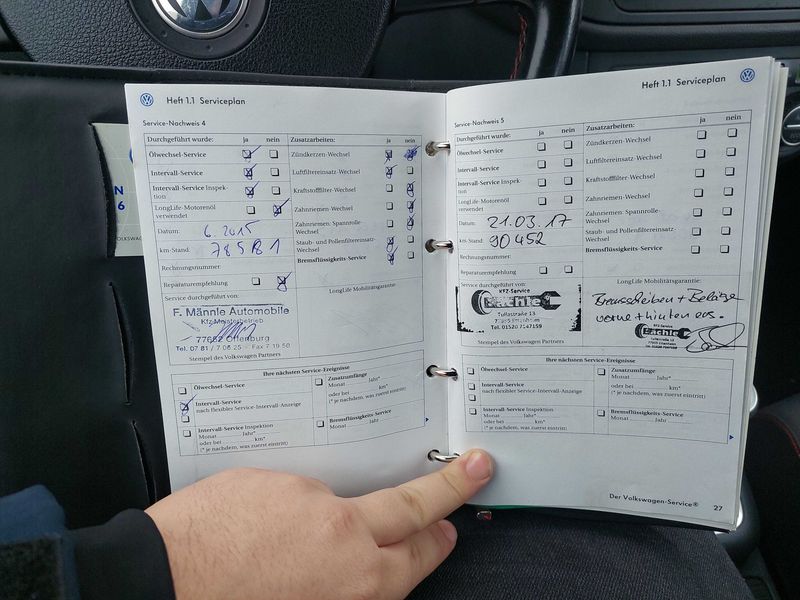 Heft 1.1 Serviceplan
Service-Nachweis 4
Durchgeführt wurde: ja nein
Ölwechsel-Service
Intervall-Service
Intervall-Service Inspek-
tion
LongLife-Motorenöl
verwendet
Datum: 6.2015
km-Stand: 78581
Rechnungsnummer:
Reparaturempfehlung
Service durchgeführt von:
F. Männle Automobile
Kfz-Meisterbetrieb
77652 Offenburg
Tel. 07 81 / 7 06 25 - Fax 7 19 50
Stempel des Volkswagen Partners
Zusatzarbeiten: ja nein
Zündkerzen-Wechsel
Luftfiltereinsatz-Wechsel
Kraftstofffilter-Wechsel
Zahnriemen-Wechsel
Zahnriemen- Spannrolle-
Wechsel
Staub- und Pollenfiltereinsatz-
Wechsel
Bremsflüssigkeits-Service
LongLife Mobilitätsgarantie:
Ihre nächsten Service-Ereignisse
Ölwechsel-Service
Intervall-Service
nach flexibler Service-Intervall-Anzeige
Intervall-Service Inspektion
Monat Jahr*
oder bei km*
(* je nachdem, was zuerst eintritt)
Zusatzumfänge
Monat Jahr*
oder bei km*
(* je nachdem, was zuerst eintritt)
Bremsflüssigkeits-Service
Monat Jahr
Heft 1.1 Serviceplan
Service-Nachweis 5
Durchgeführt wurde: ja nein
Ölwechsel-Service
Intervall-Service
Intervall-Service Inspek-
tion
LongLife-Motorenöl
verwendet
Datum: 21.03.17
km-Stand: 90452
Rechnungsnummer:
Reparaturempfehlung
Service durchgeführt von:
Kfz-Service
Bächle
Tullastraße 13
Tel. 01520 7147159
Stempel des Volkswagen Partners
Zusatzarbeiten: ja nein
Zündkerzen-Wechsel
Luftfiltereinsatz-Wechsel
Kraftstofffilter-Wechsel
Zahnriemen-Wechsel
Zahnriemen- Spannrolle-
Wechsel
Staub- und Pollenfiltereinsatz-
Wechsel
Bremsflüssigkeits-Service
LongLife Mobilitätsgarantie:
Bremsscheiben + Beläge
vorne + hinten ern.
Kfz-Service
Bächle
Ihre nächsten Service-Ereignisse
Ölwechsel-Service
Intervall-Service
nach flexibler Service-Intervall-Anzeige
Intervall-Service Inspektion
Monat Jahr*
oder bei km*
(* je nachdem, was zuerst eintritt)
Zusatzumfänge
Monat Jahr*
oder bei km*
(* je nachdem, was zuerst eintritt)
Bremsflüssigkeits-Service
Monat Jahr
Der Volkswagen-Service® 27
N
6
VOLKSWAGEN